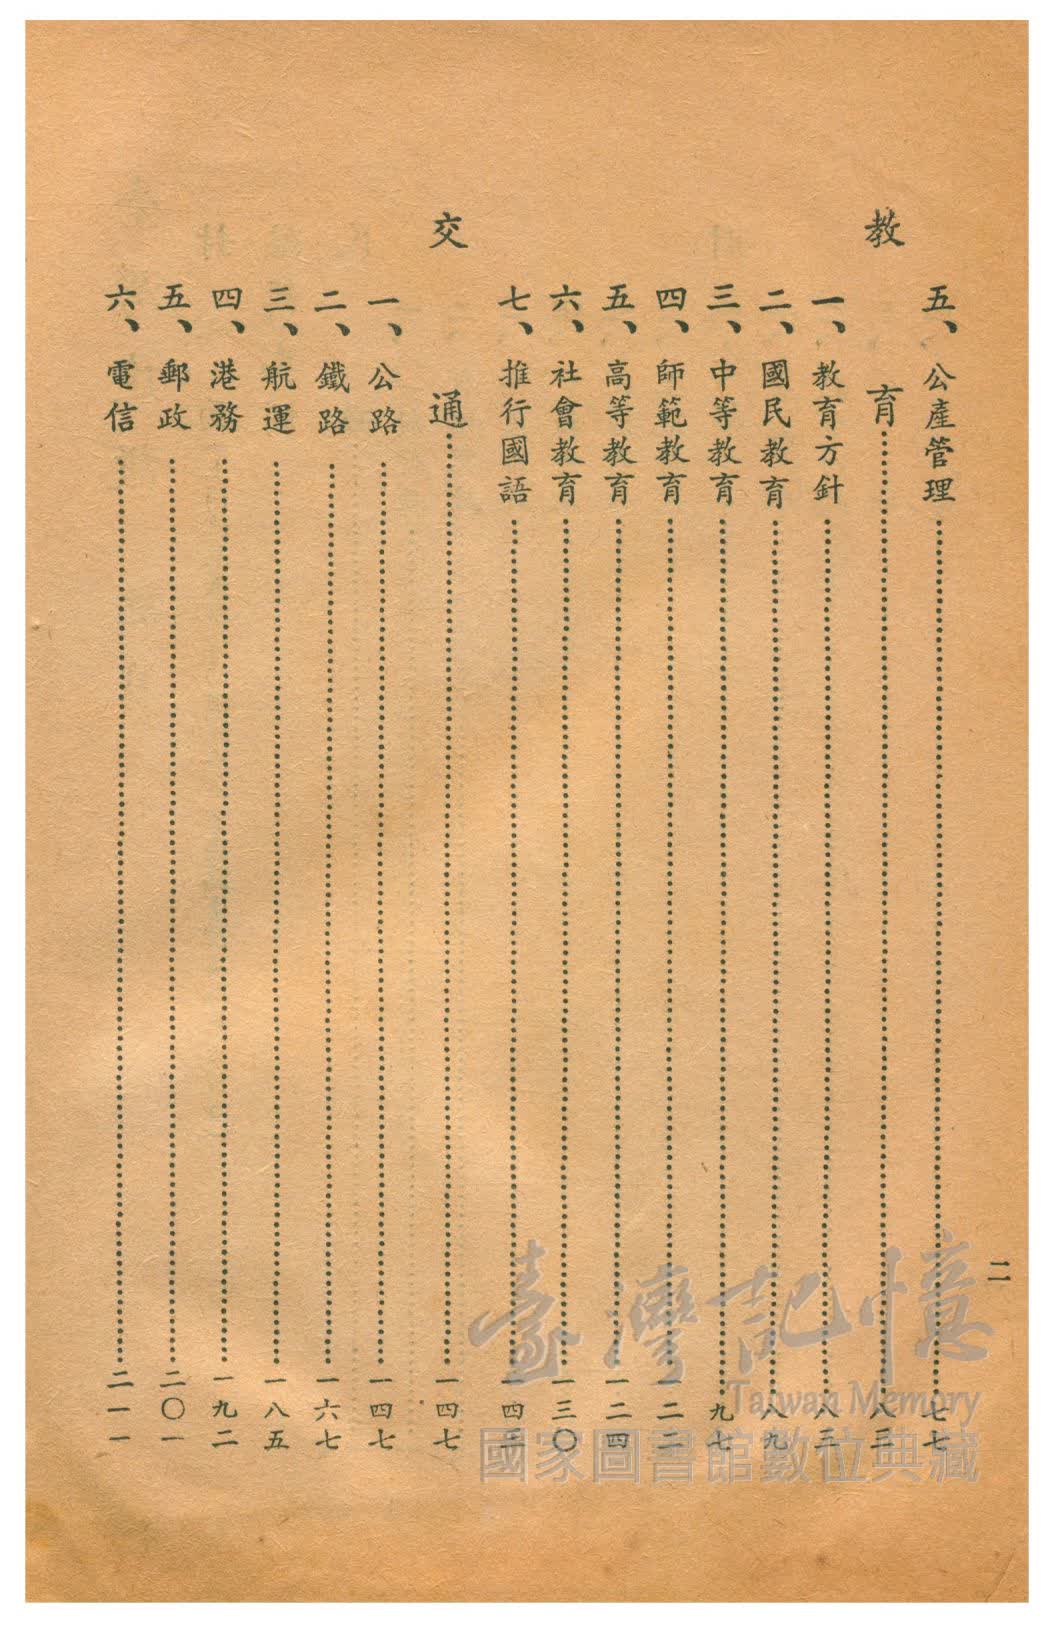 二
五、公產管理……七七
教育……八三
一、教育方針……八三
二、國民教育……八九
三、中等教育……九七
四、師範教育……一二二
五、高等教育……一二四
六、社會教育……一三〇
七、推行國語……一四三
交通……一四七
一、公路……一四七
二、鐵路……一六七
三、航運……一八五
四、港務……一九二
五、郵政……二〇一
六、電信……二一一
臺灣記憶
Taiwan Memory
國家圖書館數位典藏